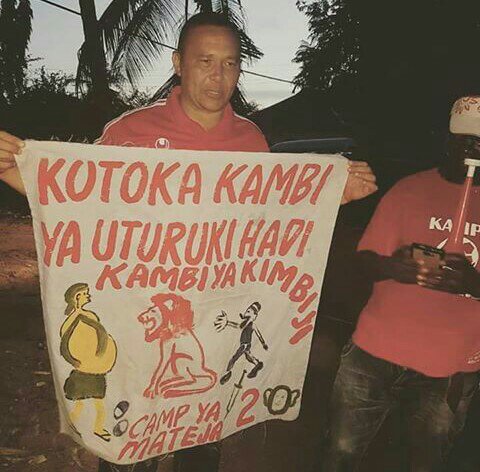 KUTOKA KAMBI
YA UTURUKI HADI
KAMBI YA KIMBIJI
CAMP YA 2
MATEJA